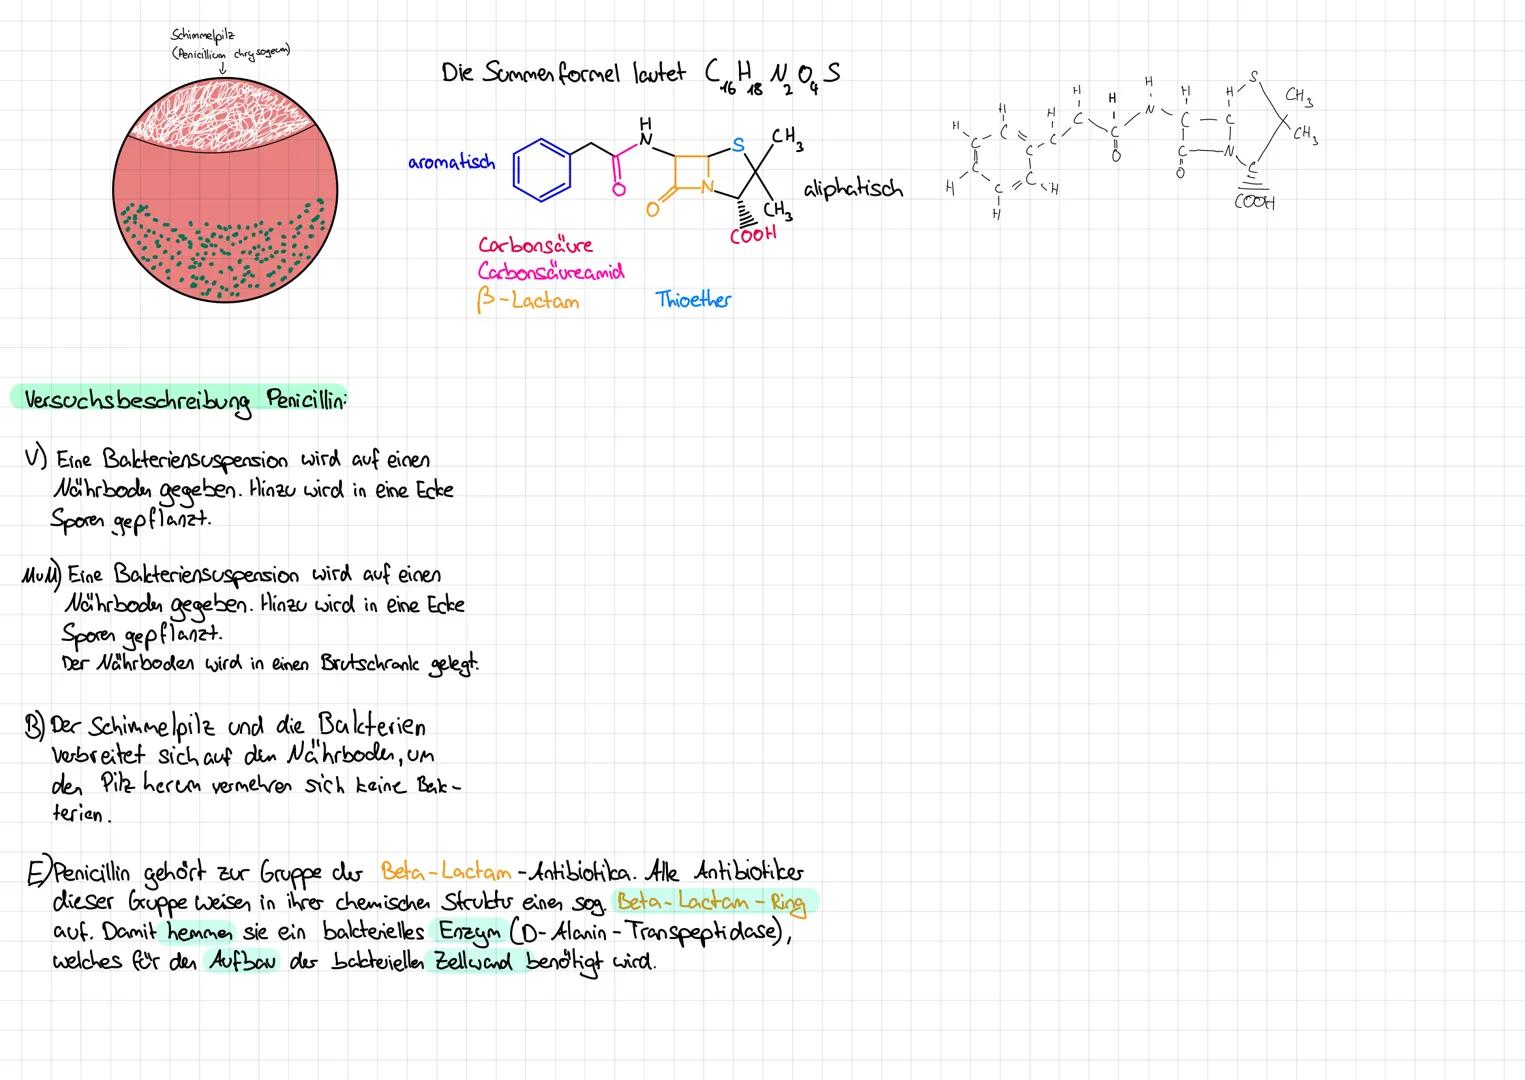 Schimmelpilz
(Penicillium chrysogeum)
Die Summenformel lautet C16 H18 N2 O4 S
aromatisch
H
N
O
O
N
S
CH3
CH3
COOH
aliphatisch
Carbonsäure
Carbonsäureamid
β-Lactam Thioether
H
H
H
H
H
H
H
H
H
H
H
C
C
C
C
C
C
C
C
C
C
C
C
C
N
N
O
O
S
CH3
CH3
COOH
Versuchsbeschreibung Penicillin:
V) Eine Bakteriensuspension wird auf einen
Nährboden gegeben. Hinzu wird in eine Ecke
Sporen gepflanzt.
MuM) Eine Bakteriensuspension wird auf einen
Nährboden gegeben. Hinzu wird in eine Ecke
Sporen gepflanzt.
Der Nährboden wird in einen Brutschrank gelegt.
B) Der Schimmelpilz und die Bakterien
verbreitet sich auf den Nährboden, um
den Pilz herum vermehren sich keine Bak-
terien.
E) Penicillin gehört zur Gruppe der Beta-Lactam-Antibiotika. Alle Antibiotiker
dieser Gruppe weisen in ihrer chemischen Struktur einen sog. Beta-Lactam-Ring
auf. Damit hemmen sie ein bakterielles Enzym (D-Alanin-Transpeptidase),
welches für den Aufbau der bakteriellen Zellwand benötigt wird.